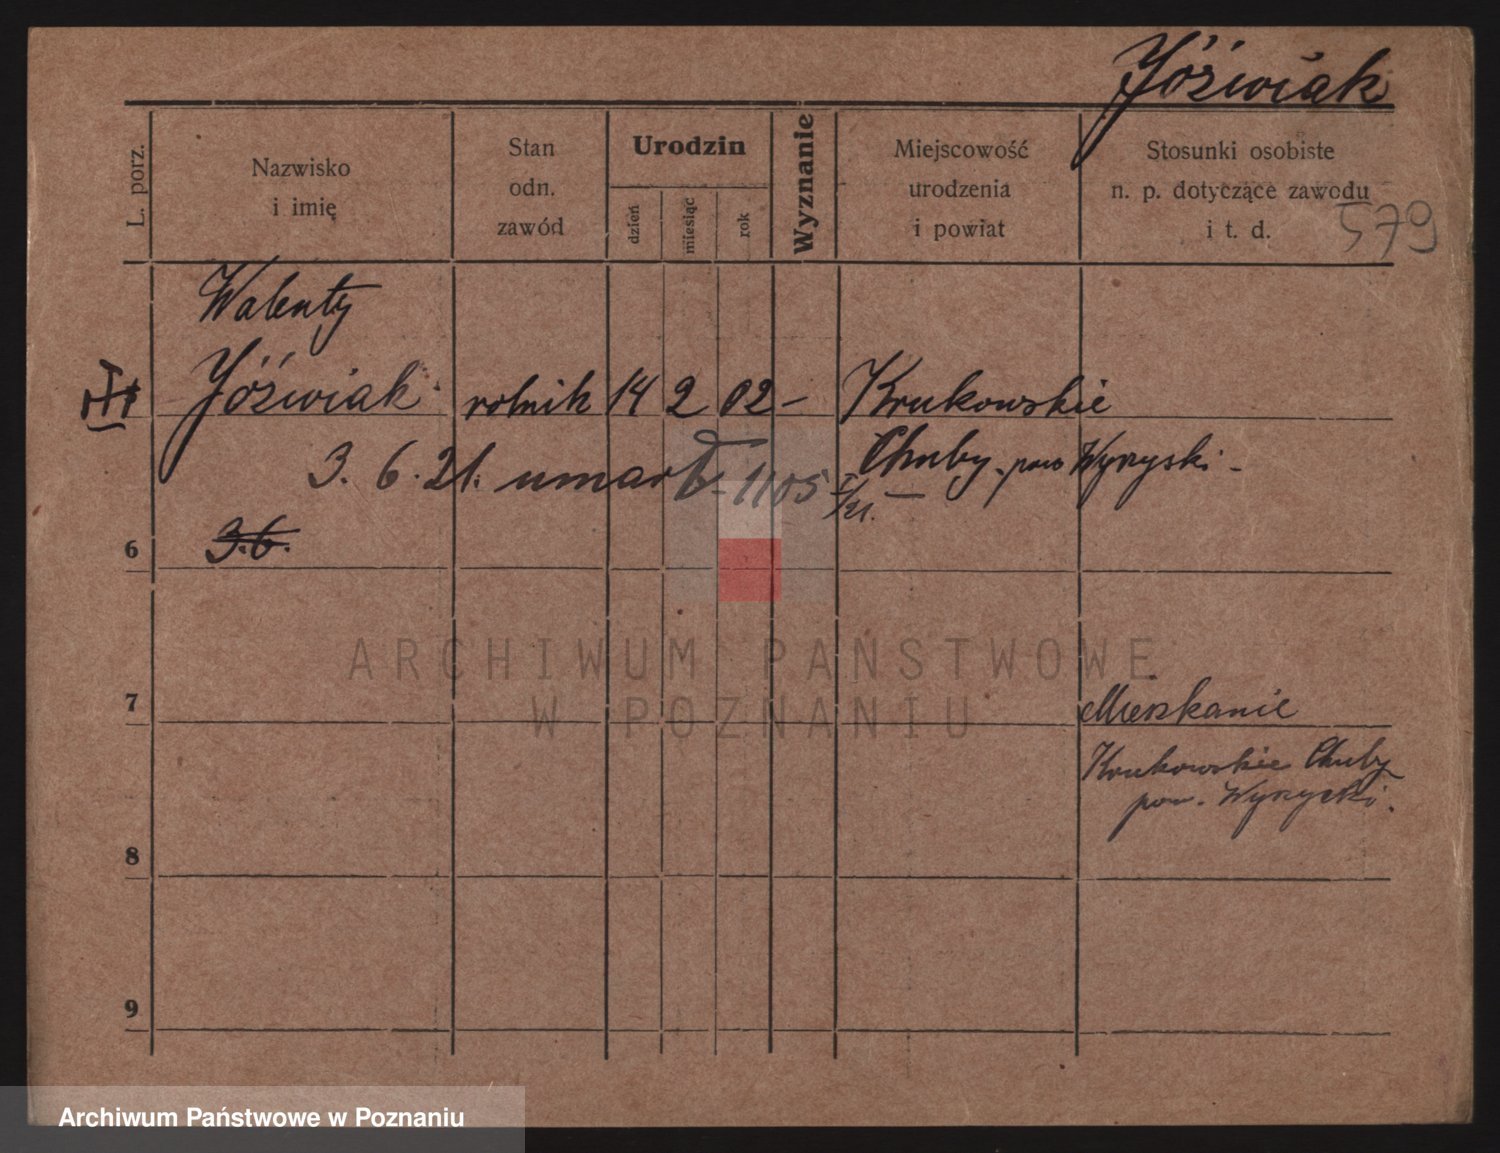 Jóźwiak
L. porz.
Nazwisko
i imię
Stan
odn.
zawód
Urodzin
dzień
miesiąc
rok
Wyznanie
Miejscowość
urodzenia
i powiat
Stosunki osobiste
n. p. dotyczące zawodu
i t. d.
579
Walenty
Jóźwiak rolnik 14 2 02 – Krukowskie
3. 6. 21. umarł 1105 Chuby pow Wyrzyski -
3.6.
6
7
Mieszkanie
Krukowskie Chuby
pow. Wyrzyski.
8
9
ARCHIWUM PAŃSTWOWE
W POZNANIU
Archiwum Państwowe w Poznaniu